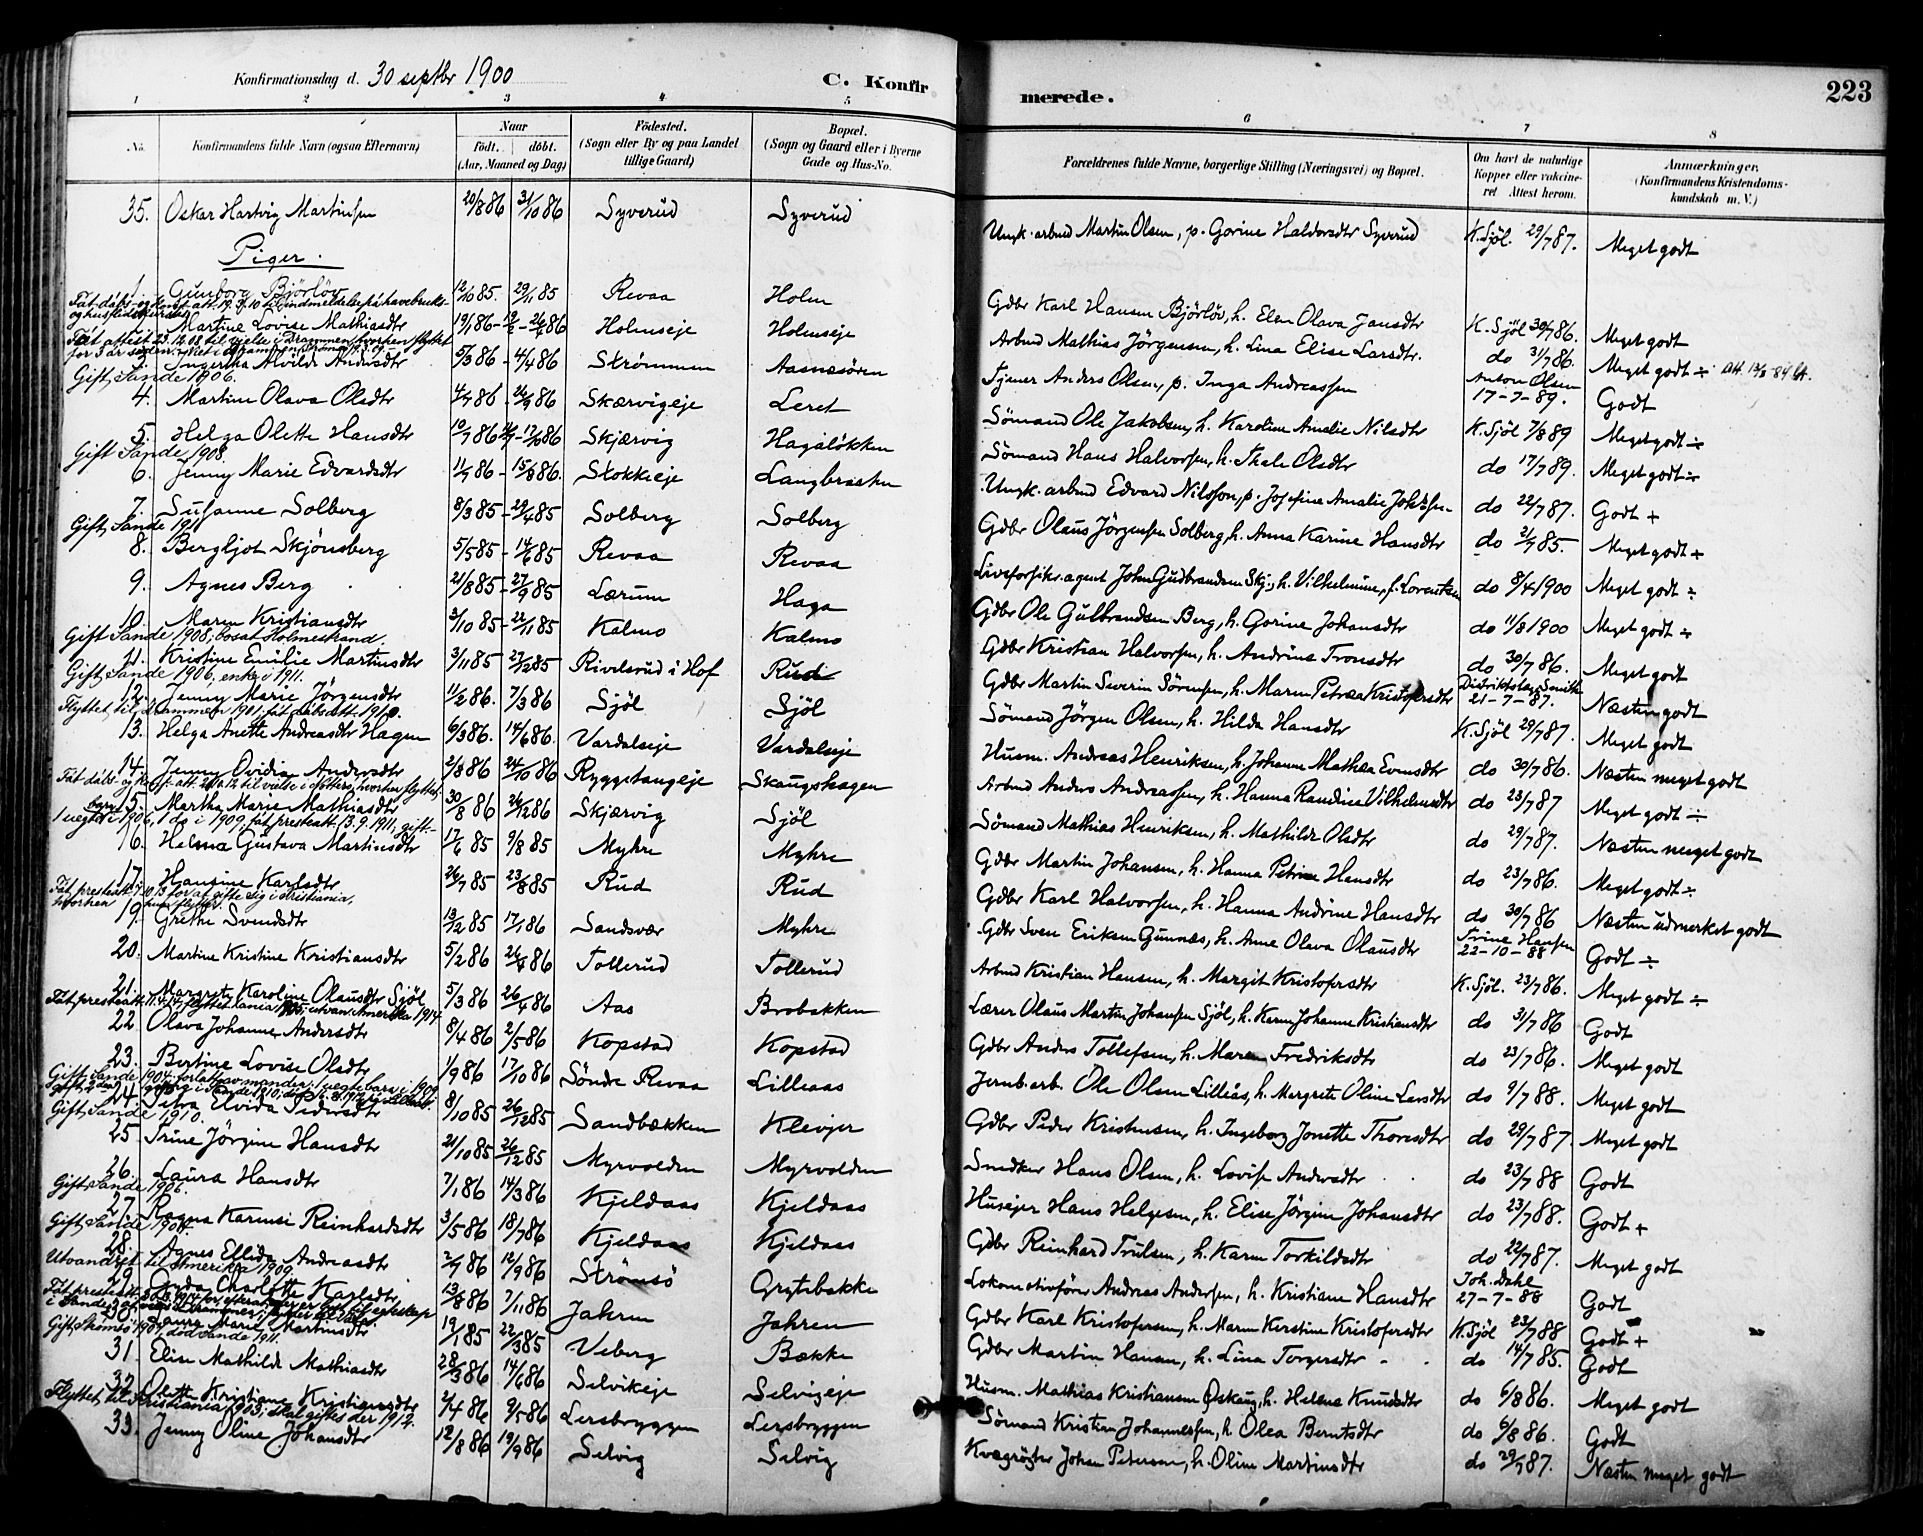 Konfirmationsdag d. 30 septbr 1900
C. Konfir
merede.
223
1 2 3 4 5 6 7 8
No.
Konfirmandens fulde Navn (ogsaa Efternavn)
Naar
födt. döbt.
(Aar, Maaned og Dag)
Födested.
(Sogn eller By og paa Landet tillige Gaard)
Bopæl.
(Sogn og Gaard eller i Byerne Gade og Hus-No.
Forældrenes fulde Navne, borgerlige Stilling (Næringsvei) og Bopæl.
Om havt de naturlige Kopper eller vaccineret Attest herom.
Anmærkninger.
(Konfirmandens Kristendomskundskab m. V.)
35. Oskar Hartvig Martinsen 20/8 86 31/10 86 Syverud Syverud Ungk. arbmd Martin Olsen, p. Gorine Haldorsdtr Syverud K. Sjöl. 29/7 87. Meget godt
Piger.
1. Gunborg Bjørløv 12/10 85. 29/11 85 Revaa Holm Gdbr Karl Hansen Bjørløv, h. Elen Olava Jansdtr K. Sjöl 30/7 86. Meget godt
Martine Lovise Mathiasdtr 19/1 86 Holmseje Holmseje Arbmd Mathias Jörgensen, h. Lina Elise Larsdtr. do 31/7 86. Meget godt ÷
Ingertha Alvilde Andersdtr 5/3 86 - 4/4 86 Strömmen Aasnesören Tjener Anders Olsen, p. Inga Andreassen Anton Olsen 17-7-89. Godt
Gift, Sande 1906.
4. Martine Olava Olsdtr Skærvigeje Leret Sömand Ole Jakobsen, h. Karoline Amalie Nilsdtr K. Sjöl 7/8 89 Meget godt ÷
5. Helga Olette Hansdtr 10/7 86 Skjærvig Hagalökken Sömand Hans Halvorsen, h. Thale Olsdtr do 17/7 89. Meget godt ÷
Gift Sande 1908.
6. Jenny Marie Edvardsdtr 11/7 86 - 15/8 86. Stokkeje Langbrækka Ungk. arbmd Edvard Nilssson, p. Josefine Amalie do 22/7 87. Godt +
7. Susanne Solberg 8/3 85 - 29/4 85 Solberg Solberg Gdbr Olaus Jörgensen Solberg, h. Anna Karine Hansdtr do 2/7 85. Meget godt +
Gift, Sande 1911
8. Bergljot Skjönsberg 5/5 85 - 14/6 85 Revaa Revaa Livsforsikr. agent John Gudbrandsen Skj., h. Vilhelmine, f. Lorentzen do 8/4 1900 Meget godt ÷
9. Agnes Berg 21/8 85 - 27/9 85 Lærum Haga Gdbr Ole Gulbrandsen Berg, h. Gorine Johansdtr do 11/8 1900 Meget godt ÷
10. Maren Kristiansdtr 3/10 85 - 22/11 85 Kalmo Kalmo Gdbr Kristian Halvorsen, h. Andrine Tronsdtr do 30/7 86. Meget godt
Gift Sande 1908, bosat Holmestrand.
11. Kristine Emilie Martinsdtr 3/11 85 27/12 85 Rivelsrud i Hof Rud Gdbr Martin Severin Sörensen, h. Maren Petrea Kristofersdtr Distriktslæge Smith 21-7-87. Næsten godt
Gift Sande 1906, enke i 1911.
12. Jenny Marie Jörgensdtr 11/2 86. 7/3 86 Sjöl Sjöl Sömand Jörgen Olsen, h. Hilda Hansdtr K. Sjöl 29/7 87. Meget godt
Flyttet til drammen 1901. fåt dåbsatt. 1910.
13. Helga Anette Andreasdtr Hagen 6/3 86. 14/6 86. Vardalseje Vardalseje Husm. Andreas Henriksen, h. Johanne Mathea Evensdtr do 30/7 86. Næsten meget godt
14. Jenny Ovidia Andersdtr 2/8 86 24/10 86 Ryggetangeje Skaugshagen Arbmd Anders Andreassen, h. Hanna Randine Vilhelmsdtr do 23/7 87 Meget godt ÷
15. Martha Marie Mathiasdtr 30/8 86 26/12 86 Skjærvig Sjöl Sömand Mathias Henriksen, h. Mathilde Olsdtr do 29/7 87. Næsten meget godt
16. Helma Gustava Martinsdtr 17/6 85 9/8 85 Myhre Myhre Gdbr Martin Johansen, h. Hanna Petrine Hansdtr do 23/7 86. Meget godt ÷
17. Hansine Karlsdtr 26/7 85 23/8 85 Rud Rud Gdbr Karl Halvorsen, h. Hanna Andrine Hansdtr do 30/7 86 Næsten udmerket godt
19. Grethe Svendsdtr 13/12 85 17/1 86 Sandsvær Myhre Gdbr Sven Eriksen Gunnæs, h. Anne Olava Olausdtr Trine Hansen 22-10-88 Godt ÷
20. Martine Kristine Kristiansdtr 5/2 86 Tollerud Tollerud Arbmd Kristian Hansen, h. Margit Kristofersdtr K. Sjöl. 23/7 86. Meget godt ÷
21. Margrete Karoline Olausdtr Sjöl 5/3 86 26/4 86 Aas Brobakken Lærer Olaus Martin Johansen Sjöl, h. Karen Johanne Kristiansdtr do 31/7 86 Godt
22. Olava Johanne Andersdtr 8/4 86 2/5 86 Kopstad Kopstad Gdbr Anders Tollefsen, h. Maren Fredriksdtr do 23/7 86. Meget godt
23. Bertine Lovise Olsdtr 1/9 86 17/10 86 Söndre Revaa Lilleaas Jernb. arb. Ole Olsen Lilleås, h. Margrete Oline Larsdtr do 9/7 88. Meget godt
24. Petra Elvida Pedersdtr 8/10 85 26/12 85 Sandbækken Klevjer Gdbr Peder Kristensen, h. Ingeborg Jonette Thoresdtr do 29/7 87. Meget godt
Gift, Sande 1910.
25 Trine Jörgine Hansdtr 21/10 85 26/12 85 Myrvolden Myrvolden Snedker Hans Olsen, h. Lovise Andersdtr do 23/7 88 Godt
26. Laura Hansdtr 7/1 86 14/3 86 Kjeldaas Kjeldaas Husejer Hans Helgesen, h. Elise Jörgine Johansdtr do 23/7 88. Godt +
Gift, Sande 1906.
27. Ragna Karensi Reinhardsdtr 3/5 86 18/7 86 Kjeldaas Kjeldaas Gdbr Reinhard Trulsen, h. Karen Torkildsdtr do 22/7 87. Meget godt
28. Agnes Ellida Andreasdtr 2/7 86 12/9 86 Strömsö Grytebakke Lokomotivförer Andreas Andersen, h. Kristiane Hansdtr Joh. Dahl 27-7-88 Godt
Utvandret til Amerika 1909.
29. Gyda Charlotte Karlsdtr 13/8 86 7/11 86 Jahren Jahren Gdbr Karl Kristofersen, h. Maren Kerstine Kristofersdtr K. Sjöl 23/7 88 Godt +
30. Laura Marie Martinsdtr 19/1 85 22/3 85 Veberg Bække Gdbr Martin Hansen, h. Lina Torgersdtr do 14/7 85. Godt
31. Elise Mathilde Mathiasdtr 28/3 86 14/6 86 Selvikeje Selvigeje Husm. Mathias Kristiansen Oskaug, h. Hellene Knudsdtr do 6/8 86. Meget godt
32. Olette Kristiane Kristiansdtr 2/4 86 9/5 86 Lersbryggen Lersbryggen Sömand Kristian Johannessen, h. Olea Berntsdtr do 6/8 86. Godt
Flyttet til Kristiania 1903; skal giftes der 1912.
33. Jenny Oline Johansdtr 12/8 86 19/9 86 Selvig Selvig Kvægrögter Johan Petersen, h. Oline Martinsdtr do 29/7 87. Næsten meget godt